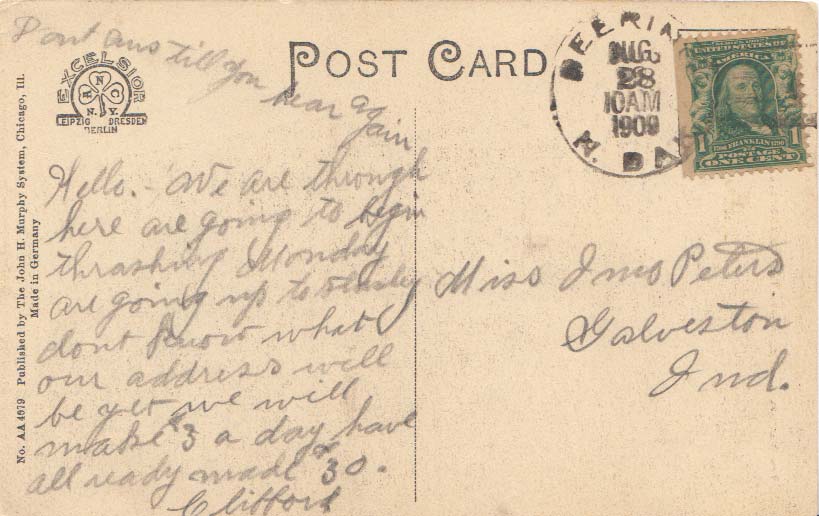 Dont ans till you
hear again
POST CARD
EXCELSIOR
R N C
N.Y.
LEIPZIG DRESDEN
BERLIN
No. AA 4579 Published by The John H. Murphy System, Chicago, Ill.
Made in Germany
DEERIN
AUG
28
10AM
1909
N. DAK
UNITED STATES OF
AMERICA
1 1
FRANKLIN
POSTAGE
ONE CENT
Hello. - We are through
here are going to begin
thrashing Monday
are going up to
dont know what
our address will
be yet we will
make $3 a day have
all ready made $30.
Clifford
Miss Imo Peters
Galveston
Ind.